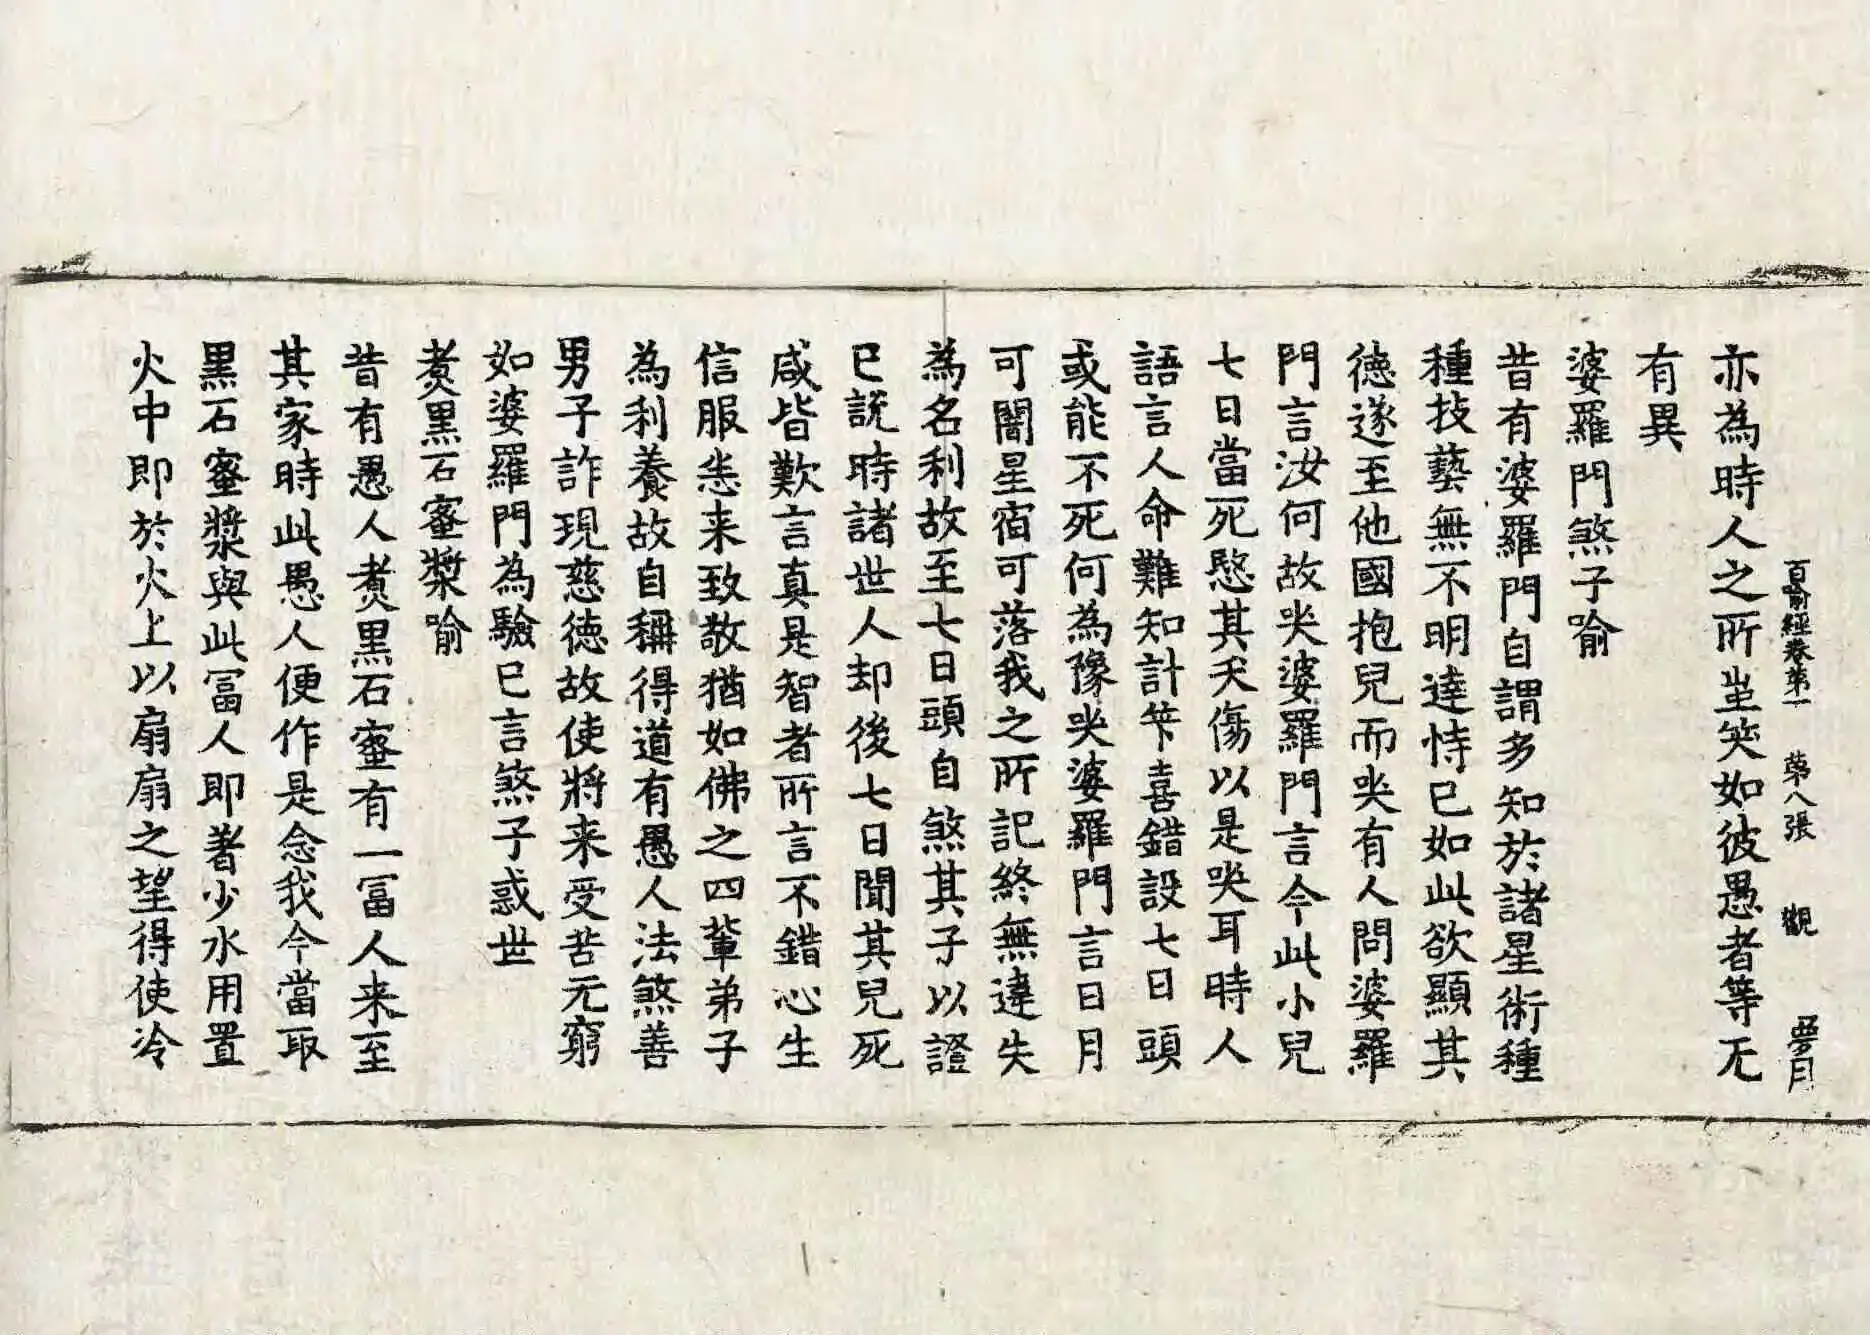 百喻經卷第一 第八張 觀 夢月
亦為時人之所㘴笑如彼愚者等无
有異
婆羅門煞子喻
昔有婆羅門自謂多知於諸星術種
種技藝無不明達恃已如此欲顯其
德遂至他國抱兒而哭有人問婆羅
門言汝何故哭婆羅門言今此小兒
七日當死愍其夭傷以是哭耳時人
語言人命難知計笇喜錯設七日頭
或能不死何為豫哭婆羅門言日月
可闇星宿可落我之所記終無違失
為名利故至七日頭自煞其子以證
已說時諸世人却後七日聞其兒死
咸皆歎言真是智者所言不錯心生
信服悉来致敬猶如佛之四輩弟子
為利養故自稱得道有愚人法煞善
男子詐現慈德故使將来受苦无窮
如婆羅門為驗已言煞子惑世
煑黒石蜜漿喻
昔有愚人煑黒石蜜有一冨人来至
其家時此愚人便作是念我今當取
黒石蜜漿與此冨人即著少水用置
火中即於火上以扇扇之望得使冷